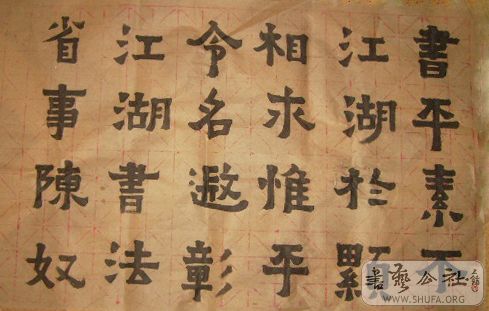 書平素
江湖於
相求惟平
令名遐彰
江湖書法
省事陳奴
書藝公社
WWW.SHUFA.ORG